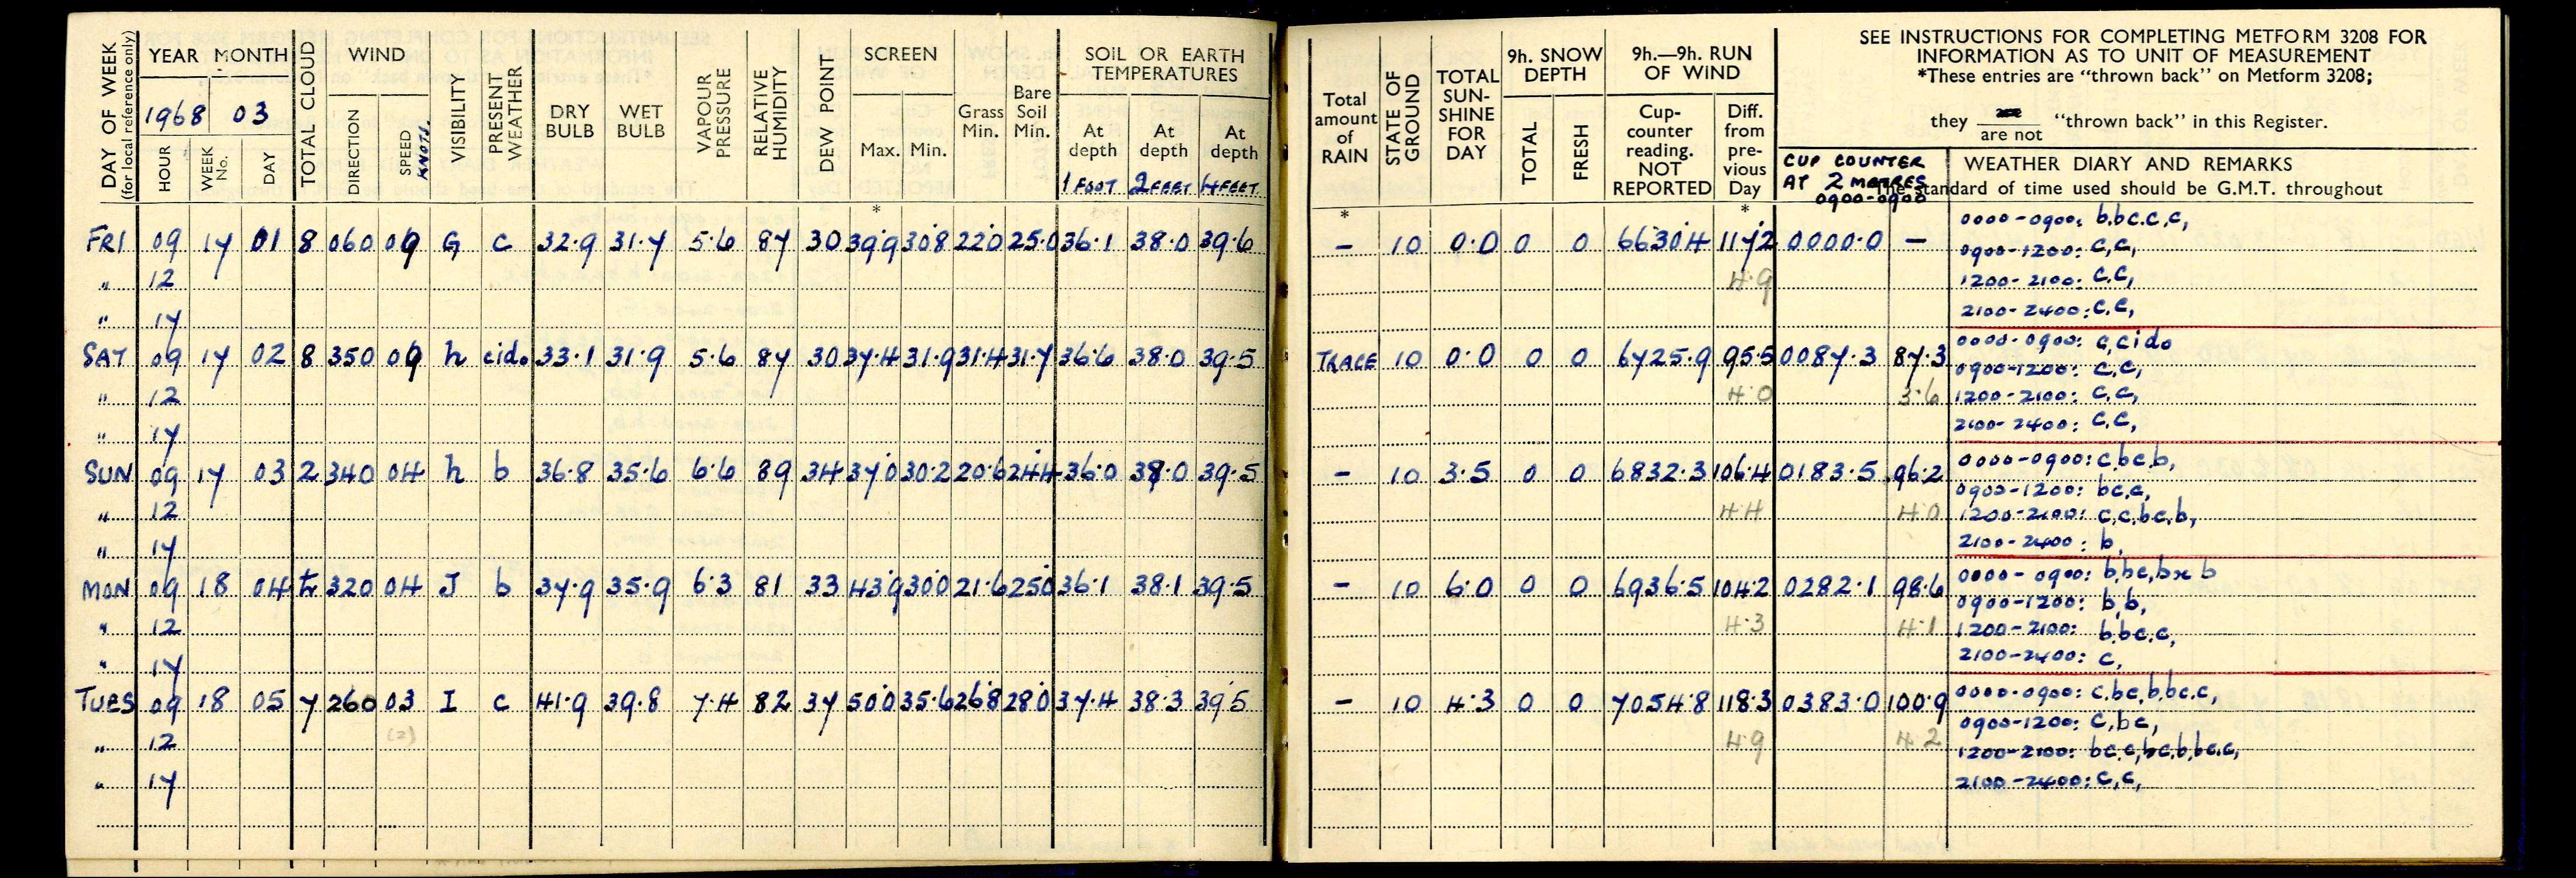 DAY OF WEEK
(for local reference only)
YEAR MONTH
1968 03
HOUR
WEEK No.
DAY
TOTAL CLOUD
WIND
DIRECTION
SPEED KNOTS.
VISIBILITY
PRESENT WEATHER
DRY BULB
WET BULB
VAPOUR PRESSURE
RELATIVE HUMIDITY
DEW POINT
SCREEN
Max. Min.
*
Grass Min.
Bare Soil Min.
SOIL OR EARTH TEMPERATURES
At depth 1 FOOT
At depth 2 FEET
At depth 4 FEET
FRI 09 17 01 8 060 09 G c 32.9 31.7 5.6 87 30 39.9 30.8 22.0 25.0 36.1 38.0 39.6
" 12
" 17
SAT 09 17 02 8 350 09 h cido 33.1 31.9 5.6 87 30 37.4 31.9 31.4 31.7 36.6 38.0 39.5
" 12
" 17
SUN 09 17 03 2 340 04 h b 36.8 35.6 6.6 89 34 37.0 30.2 20.6 24.4 36.0 38.0 39.5
" 12
" 17
MON 09 18 04 tr 320 04 J b 37.9 35.9 6.3 81 33 43.9 30.0 21.6 25.0 36.1 38.1 39.5
" 12
" 17
TUES 09 18 05 7 260 03 I c 41.9 39.8 7.4 82 37 50.0 35.6 26.8 28.0 37.4 38.3 39.5
" 12 (2)
" 17
Total amount of RAIN
*
STATE OF GROUND
TOTAL SUN-SHINE FOR DAY
9h. SNOW DEPTH
TOTAL
FRESH
9h.—9h. RUN OF WIND
Cup-counter reading. NOT REPORTED
Diff. from pre-vious Day
*
SEE INSTRUCTIONS FOR COMPLETING METFORM 3208 FOR
INFORMATION AS TO UNIT OF MEASUREMENT
*These entries are "thrown back" on Metform 3208;
they are / are not "thrown back" in this Register.
CUP COUNTER
AT 2 METRES
0900-0900
WEATHER DIARY AND REMARKS
The standard of time used should be G.M.T. throughout
– 10 0.0 0 0 6630.4 117.2 0000.0 – 0000-0900: b,bc.c.c,
0900-1200: c,c,
4.9 1200-2100: c.c,
2100-2400: c.c,
TRACE 10 0.0 0 0 6725.9 95.5 0087.3 87.3 0000-0900: c,cido
0900-1200: c.c,
4.0 3.6 1200-2100: c.c,
2100-2400: c.c,
– 10 3.5 0 0 6832.3 106.4 0183.5 96.2 0000-0900: c.bc.b,
0900-1200: bc.c,
4.4 4.0 1200-2100: c,c,bc,b,
2100-2400: b,
– 10 6.0 0 0 6936.5 104.2 0282.1 98.6 0000-0900: b,bc,bx b
0900-1200: b,b,
4.3 4.1 1200-2100: b,bc.c,
2100-2400: c,
– 10 4.3 0 0 7054.8 118.3 0383.0 100.9 0000-0900: c.bc,b,bc.c,
0900-1200: c,bc,
4.9 4.2 1200-2100: bc.c,bc,b,bc.c,
2100-2400: c,c,